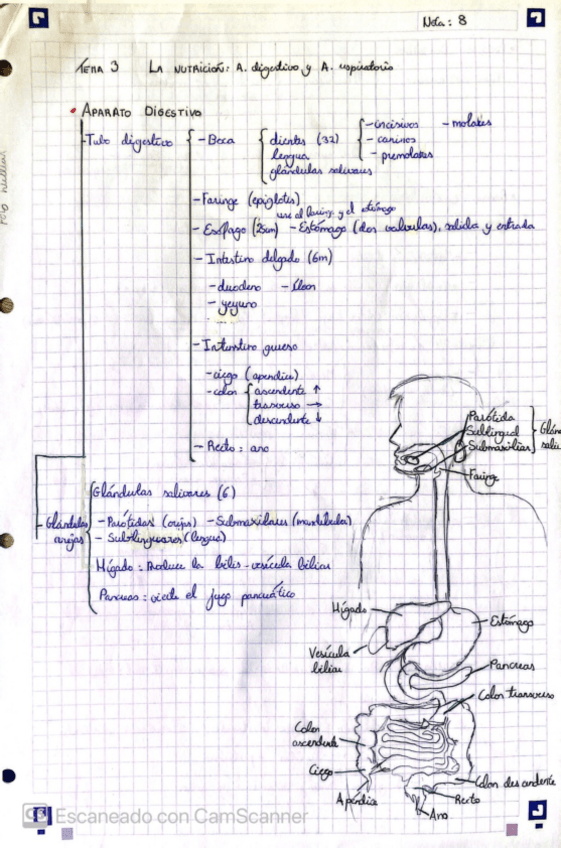 Nota: 8
TEMA 3 LA NUTRICIÓN: A. digestivo y A. respiratorio
• APARATO DIGESTIVO
Tubo digestivo
- Boca
dientes (32)
- incisivos - molares
- caninos
- premolares
lengua
glándulas salivares
- Faringe (epiglotis)
une al faringe y el estómago
- Esófago (25cm) - Estómago (dos valvulas), salida y entrada
- Intestino delgado (6m)
- duodeno - Íleon
- yeyuno
- Intestino grueso
- ciego (apendice)
- colon
ascendente ↑
transverso →
descendente ↓
- Recto: ano
- Glándulas anejas
Glándulas salivares (6)
- Parótidas (oreja) - Submaxilares (mandíbula)
- Sublinguares (lengua)
Hígado: Produce la bilis - vesícula biliar
Pancreas: vierte el jugo pancreático
Parótida
Sublingual
Submaxilar
Glán
saliv
Faringe
Hígado
Estómago
Vesícula
biliar
Pancreas
Colon transverso
Colon
ascendente
Ciego
Apéndice
Colon descendente
Recto
Ano
CS Escaneado con CamScanner